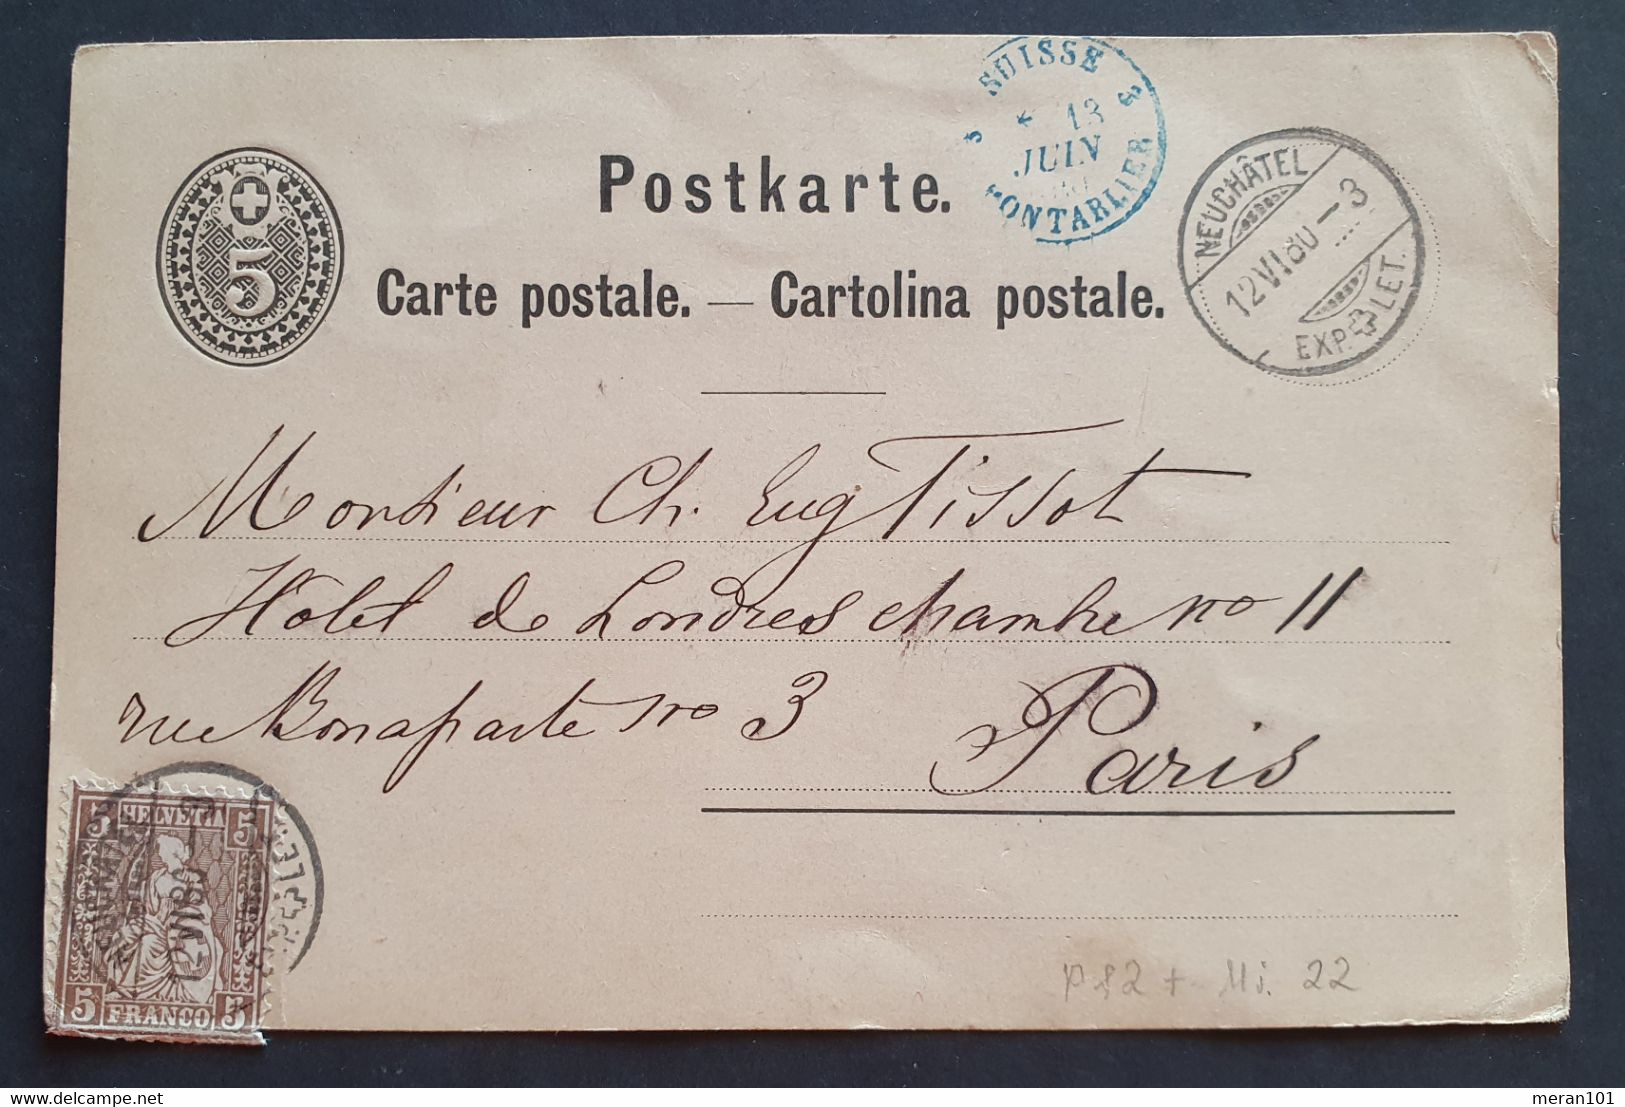 SUISSE
13
JUIN
PONTARLIER
NEUCHÂTEL
12 VI 80 – 3
EXP. LET.
5
Postkarte.
Carte postale. — Cartolina postale.
Monsieur Ch. Eug Tissot
Hôtel de Londres chambre no 11
rue Bonaparte no 3 Paris
5 HELVETIA 5
12 VI 80
5 FRANCO 5
P 82 + Mi. 22
meran101